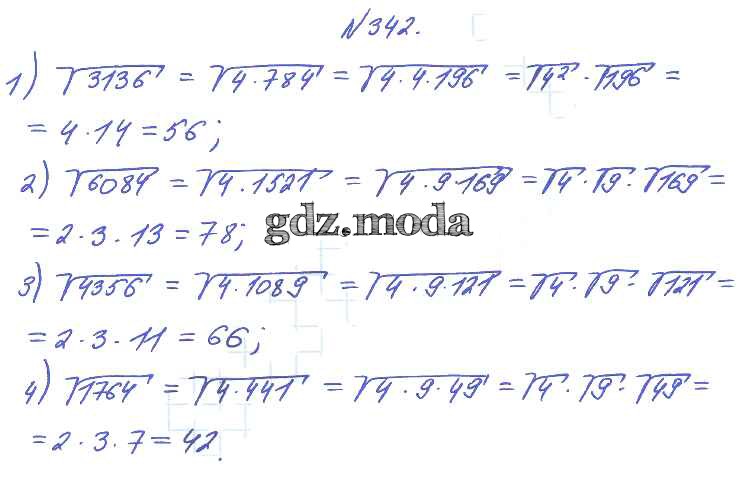 №342.
1) √3136 = √4·784 = √4·4·196 = √4² · √196 =
= 4·14 = 56;
2) √6084 = √4·1521 = √4·9·169 = √4·√9·√169 =
= 2·3·13 = 78;
gdz.moda
3) √4356 = √4·1089 = √4·9·121 = √4·√9·√121 =
= 2·3·11 = 66;
4) √1764 = √4·441 = √4·9·49 = √4·√9·√49 =
= 2·3·7 = 42.